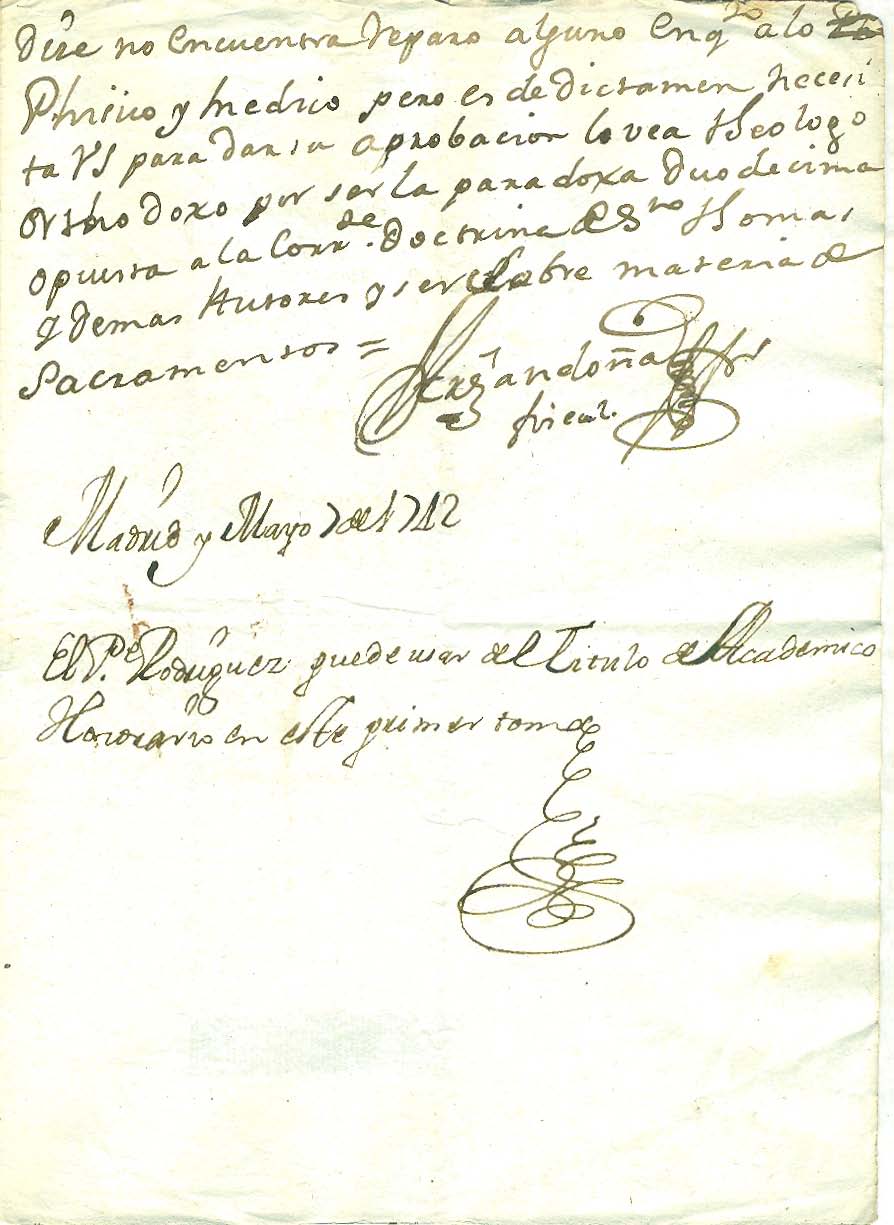 Dize no encuentra reparo alguno en q.to a lo
Phisico y medico pero es de dictamen necesi
ta VS para dar su aprobacion lo vea theologo
orthodoxo por ser la paradoxa duodecima
opuesta a la Corr.te Doctrina de S.to thomas
y demas Autores y ser sobre materia de
Sacramentos =
fiscal.
Madrid y Mayo 7 de 1742
El P.e Rodriguez puede usar del Titulo de Academico
Honorario en este primer tomo